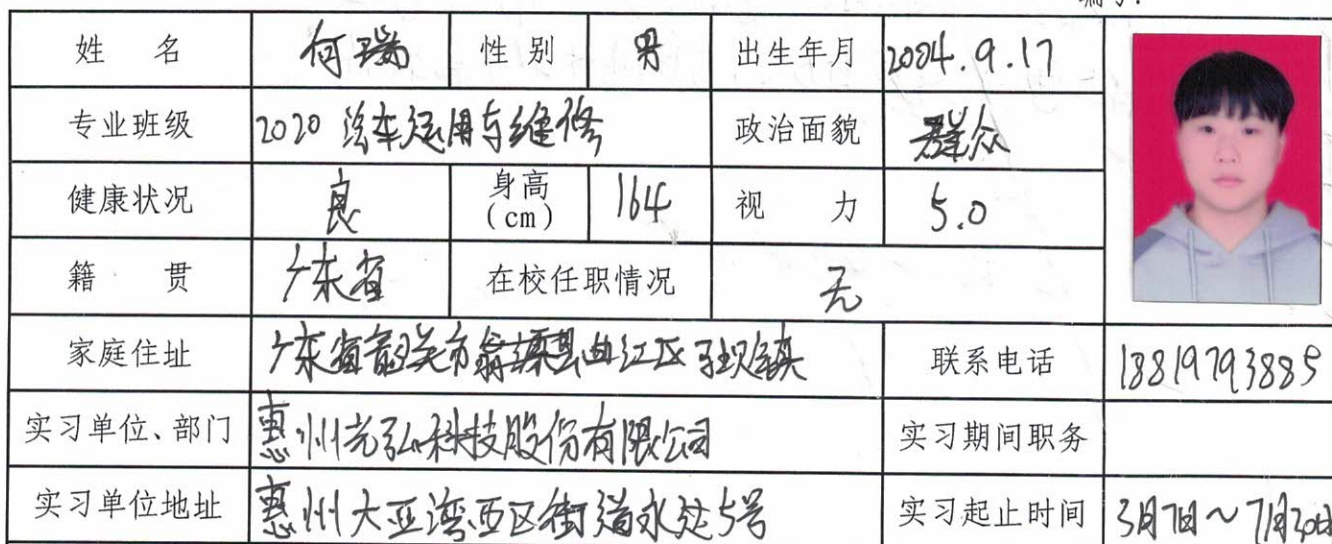 编号:
姓 名 何瑞 性 别 男 出生年月 2004.9.17
专业班级 2020 汽车运用与维修 政治面貌 群众
健康状况 良 身高(cm) 164 视 力 5.0
籍 贯 广东省 在校任职情况 无
家庭住址 广东省韶关市翁源县曲江区马坝镇 联系电话 18819793885
实习单位、部门 惠州光弘科技股份有限公司 实习期间职务
实习单位地址 惠州大亚湾西区街道永达5号 实习起止时间 3月7日~7月30日